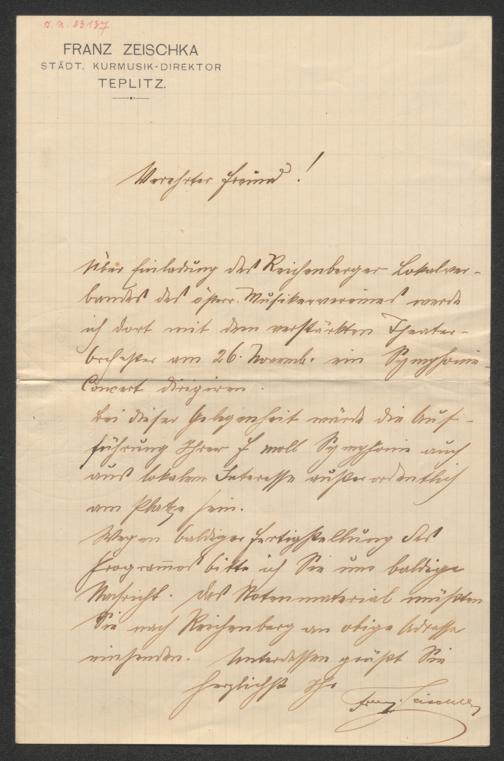 J.N. 83137
FRANZ ZEISCHKA
STÄDT. KURMUSIK-DIREKTOR
TEPLITZ.
Verehrter Freund!
Über Einladung des Reichenberger Lokalver-
bandes des österr. Musikervereines werde
ich dort mit dem verstärkten Theater-
Orchester am 26. Novemb. ein Symphonie-
Concert dirigiren.
Bei dieser Gelegenheit würde die Auf-
führung Ihrer F moll Symphonie auch
aus lokalem Interesse außerordentlich
am Platze sein.
Wegen baldiger Fertigstellung des
Programmes bitte ich Sie um baldige
Nachricht. Das Notenmaterial müßten
Sie nach Reichenberg an obige Adresse
einsenden. Unterdessen grüßt Sie
herzlichst Ihr
Franz Zeischka